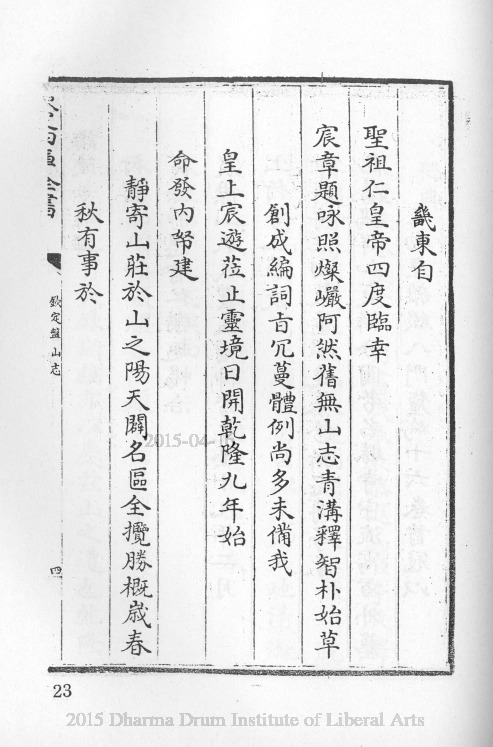 畿東自
聖祖仁皇帝四度臨幸
宸章題咏照燦巗阿然舊無山志青溝釋智朴始草
創成編詞旨冗蔓體例尚多未備我
皇上宸遊莅止靈境日開乾隆九年始
命發內帑建
靜寄山莊於山之陽天闢名區全攬勝概歲春
秋有事於
欽定盤山志
四
23
2015-04-0
2015 Dharma Drum Institute of Liberal Arts